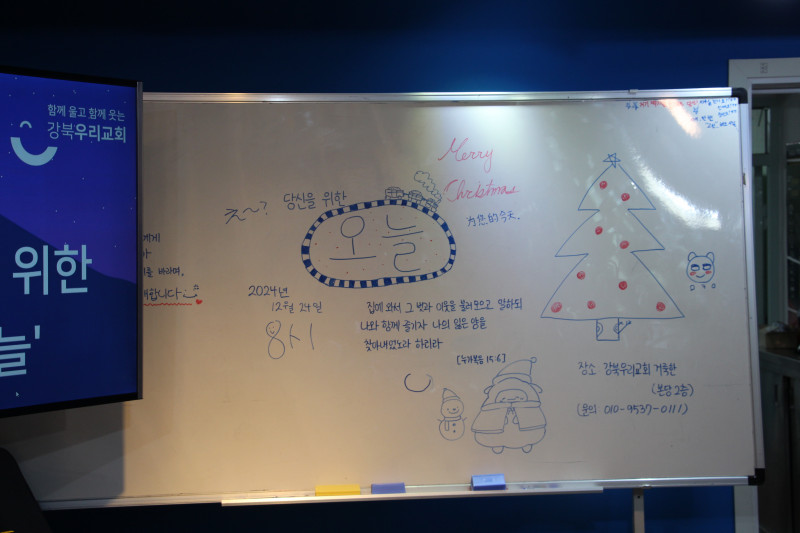 함께 울고 함께 웃는
강북우리교회
위한
늘'
바라며,
합니다
Merry
Christmas
당신을 위한
오늘
为您的今天.
2024년
12월 24일
8시
집에 와서 그 벗과 이웃을 불러모으고 말하되
나와 함께 즐기자 나의 잃은 양을
찾아내었노라 하리라
[누가복음 15:6]
장소 강북우리교회 거룩한
(본당 2층)
(문의 010-9537-0111)